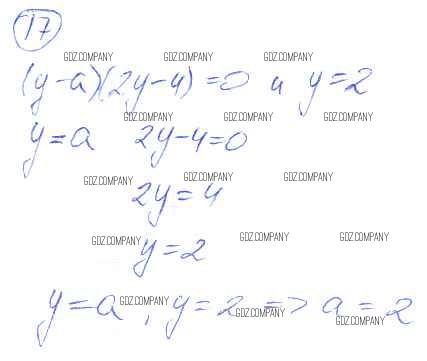 17
GDZ.COMPANY GDZ.COMPANY GDZ.COMPANY
(y-a)(2y-4)=0 и y=2
GDZ.COMPANY GDZ.COMPANY GDZ.COMPANY
y=a 2y-4=0
GDZ.COMPANY GDZ.COMPANY GDZ.COMPANY
2y=4
GDZ.COMPANY GDZ.COMPANY GDZ.COMPANY
y=2
GDZ.COMPANY GDZ.COMPANY GDZ.COMPANY
y=a, y=2 => a=2